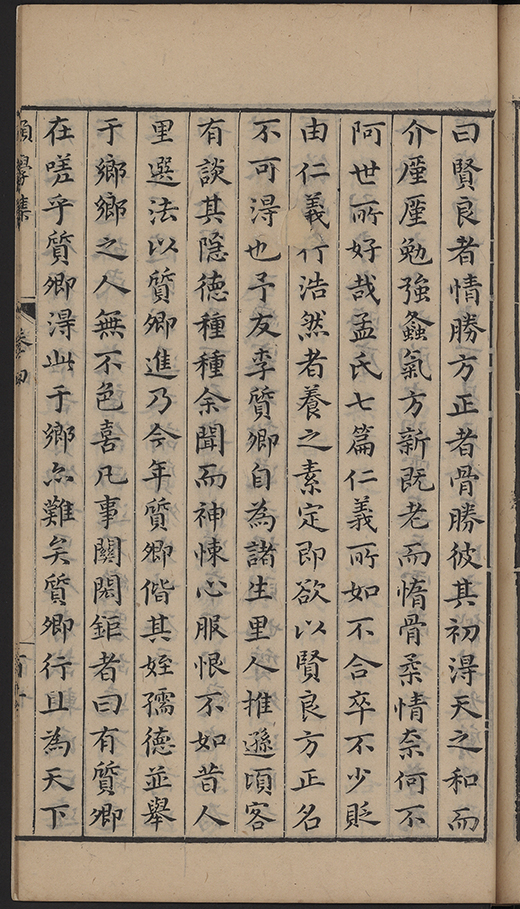 曰賢良者情勝方正者骨勝彼其初得天之和而
介廑廑勉強螽氣方新既老而惰骨柔情奈何不
阿世所好哉孟氏七篇仁義所如不合卒不少貶
由仁義行浩然者養之素定即欲以賢良方正名
不可得也予友李質卿自為諸生里人推遜頃客
有談其隐德種種余聞而神悚心服恨不如昔人
里選法以質卿進乃今年質卿偕其姪孺德並舉
于鄉鄉之人無不色喜凡事關閎鉅者曰有質卿
在嗟乎質卿得此于鄉亦難矣質卿行且為天下
學集
卷四